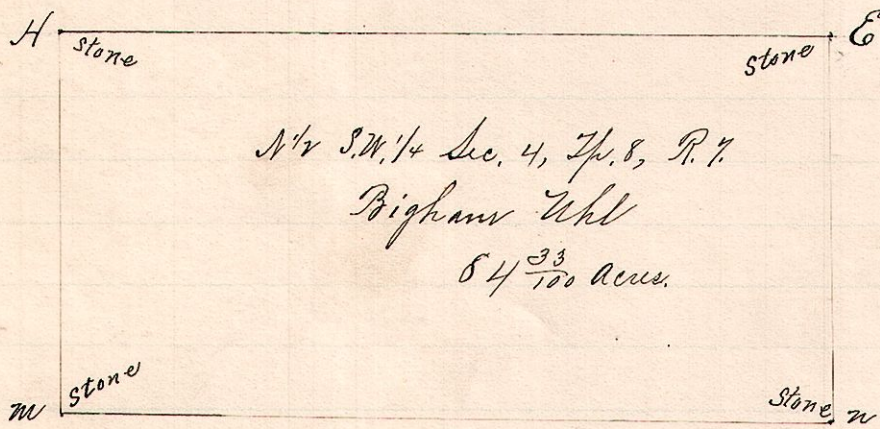 H E
stone stone
N 1/2 S.W. 1/4 Sec. 4, Tp. 8, R. 7.
Bigham Uhl
84 33/100 Acres.
stone stone
m n